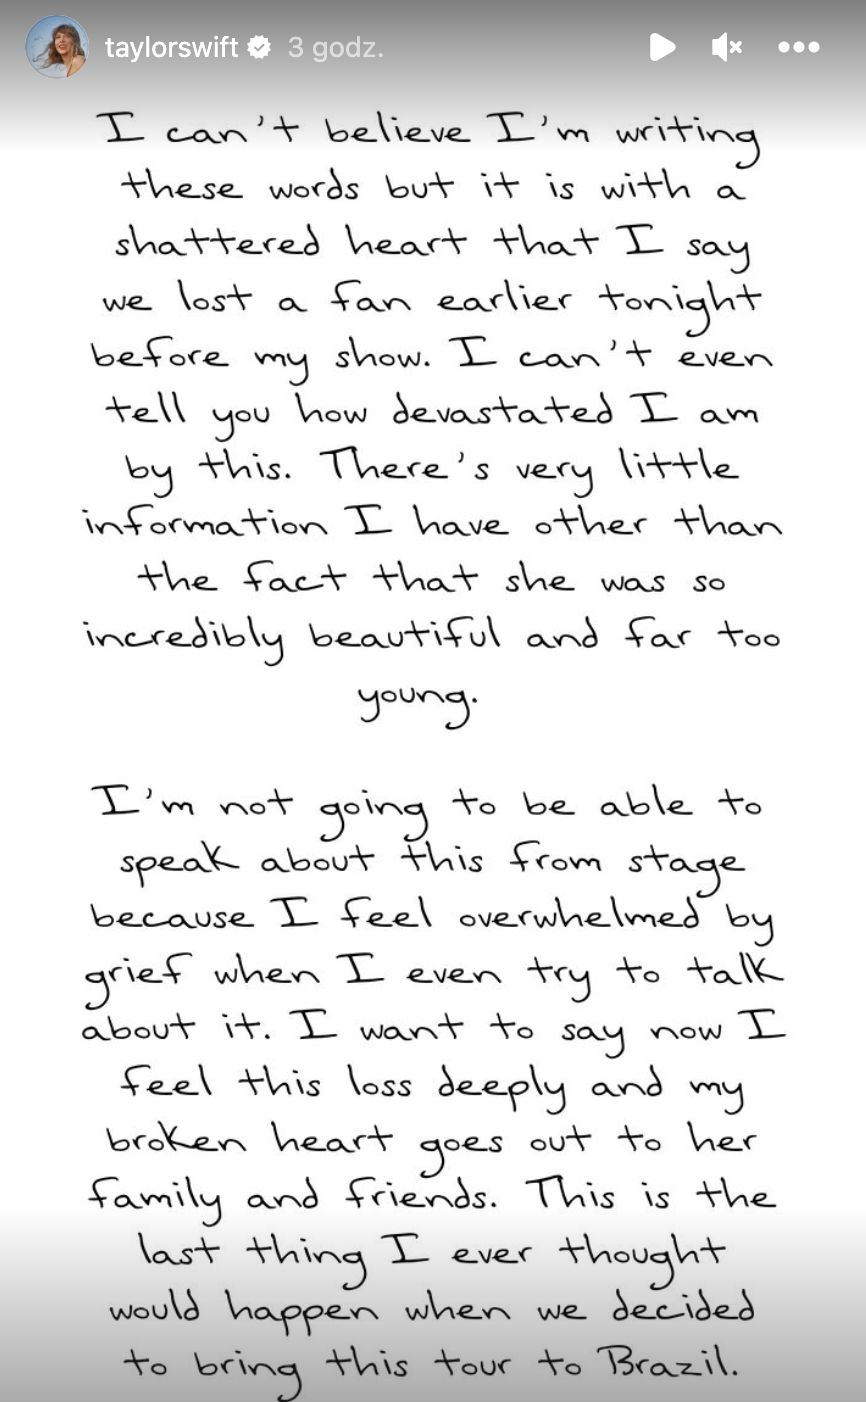 taylorswift 3 godz.
I can't believe I'm writing
these words but it is with a
shattered heart that I say
we lost a fan earlier tonight
before my show. I can't even
tell you how devastated I am
by this. There's very little
information I have other than
the fact that she was so
incredibly beautiful and far too
young.
I'm not going to be able to
speak about this from stage
because I feel overwhelmed by
grief when I even try to talk
about it. I want to say now I
feel this loss deeply and my
broken heart goes out to her
family and friends. This is the
last thing I ever thought
would happen when we decided
to bring this tour to Brazil.